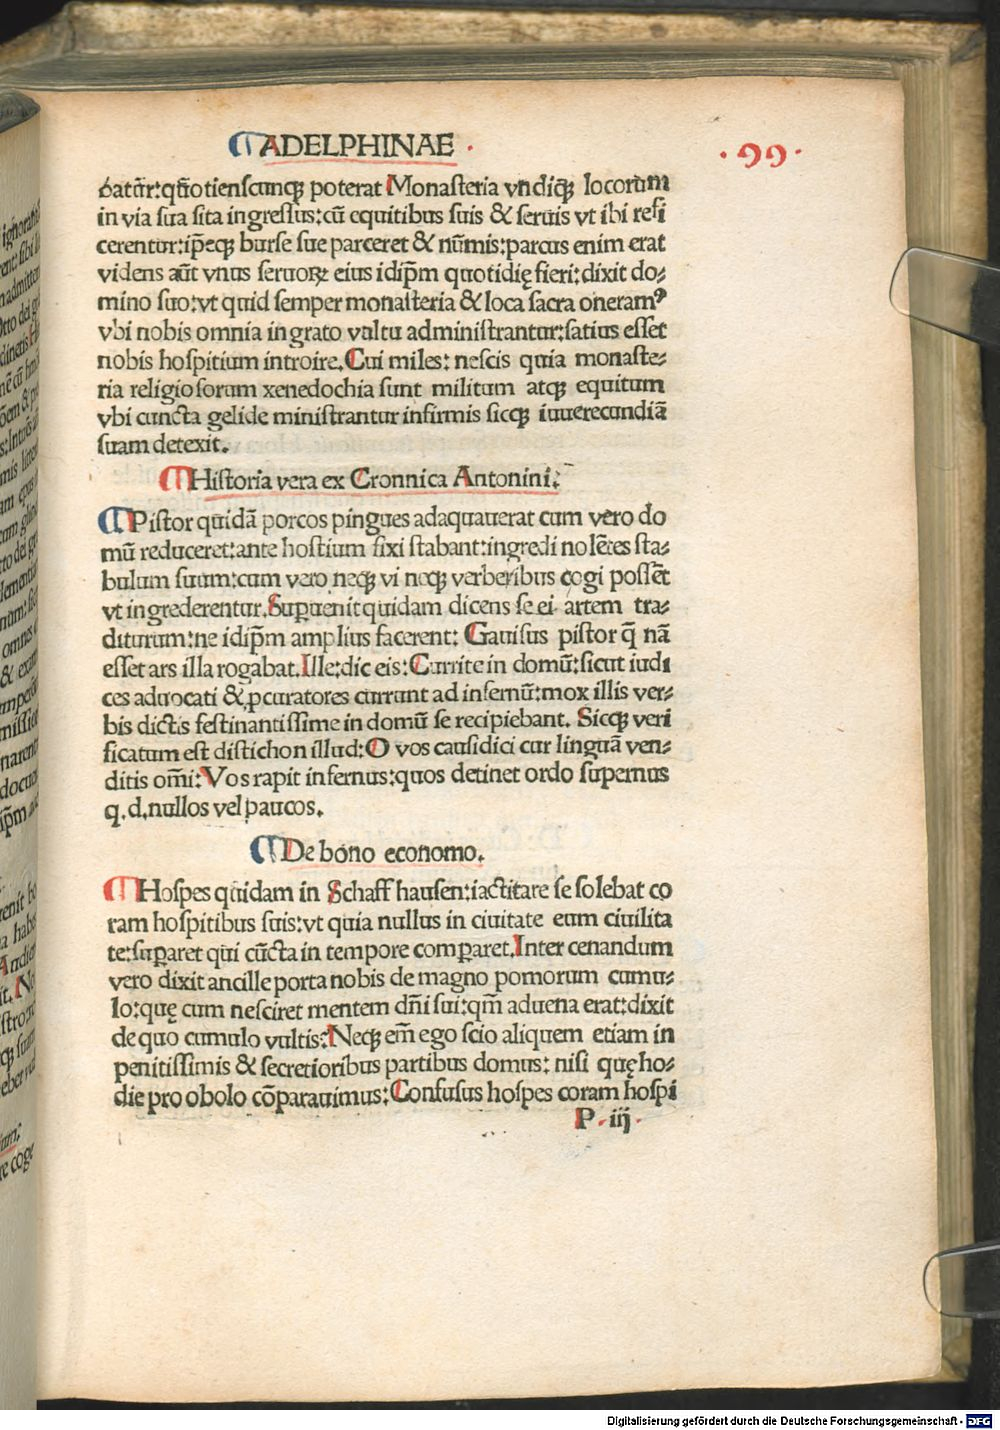 ¶ADELPHINAE · · 99 ·
batur̄:quōtienscunqꝫ poterat Monasteria vndiqꝫ locorum
in via sua sita ingressus:cū equitibus suis & seruis vt ibi refi
cerentur:ip̄eqꝫ burse sue parceret & nūmis:parcus enim erat
videns aūt vnus seruoꝝ eius idip̄m quotidię fieri:dixit do⸗
mino suo:vt quid semper monasteria & loca sacra oneramꝰ
vbi nobis omnia ingrato vultu administrantur:satius esset
nobis hospitium introire.Cui miles: nescis quia monaste⸗
ria religiosorum xenedochia sunt militum atqꝫ equitum
vbi cuncta gelide ministrantur infirmis sicqꝫ iuuerecundiā
suam detexit.
¶Historia vera ex Cronnica Antonini:
¶Pistor quidā porcos pingues adaquauerat cum vero do
mū reduceret:ante hostium fixi stabant:ingredi nolētes sta⸗
bulum suum:cum vero neqꝫ vi neqꝫ verberibus cogi possēt
vt ingrederentur.Suꝑuenit quidam dicens se ei artem tra⸗
diturum:ne idip̄m amplius facerent: Gauisus pistor q̄ nā
esset ars illa rogabat.Ille:dic eis:Currite in domū:sicut iudi
ces aduocati &ꝓcuratores currunt ad infernū:mox illis ver⸗
bis dictis festinantissime in domū se recipiebant. Sicqꝫ veri
ficatum est distichon illud:O vos causidici cur linguā ven⸗
ditis om̄i:Vos rapit infernus:quos detinet ordo supernus
q.d.nullos vel paucos.
¶De bono economo.
¶Hospes quidam in Schaffhausen:iactitare se solebat co
ram hospitibus suis:vt quia nullus in ciuitate eum ciuilita
te:suꝑaret qui cūcta in tempore comꝑaret.Inter cenandum
vero dixit ancille porta nobis de magno pomorum cumu⸗
lo:quę cum nesciret mentem dn̄i sui:qm̄ aduena erat:dixit
de quo cumulo vultis:Neqꝫ em̄ ego scio aliquem etiam in
penitissimis & secretioribus partibus domus: nisi quę ho⸗
die pro obolo cōparauimus:Confusus hospes coram hospi
P·iij·
Digitalisierung gefördert durch die Deutsche Forschungsgemeinschaft - DFG